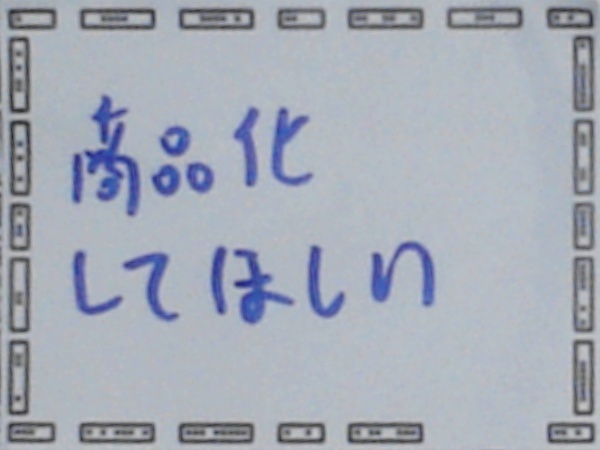 商品化
してほしい